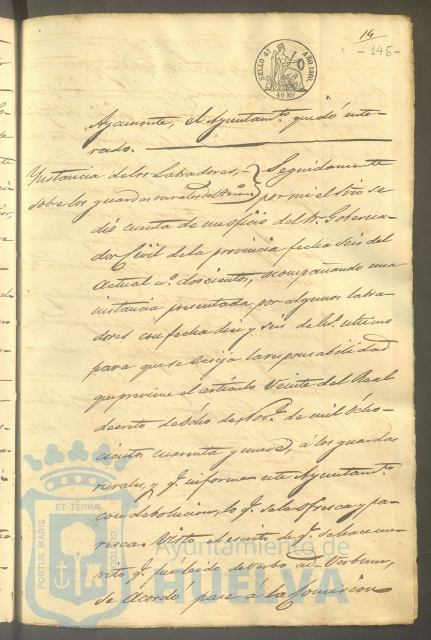 14
- 145 -
SELLO 4º AÑO 1860.
40 Ms
Ayamonte; el Ayuntamto. quedó ente-
rado.
Instancia de los Labradores, Seguidamente
sobre los guardas rurales del término por mi el Srio se
dió cuenta de un oficio del Sr. Goberna-
dor Civil de la provincia fecha seis del
actual nº. doscientos, acompañando una
instancia presentada por algunos labra-
dores con fecha diez y seis de último
para que se exija la responsabilidad
que previene el artículo veinte del Real
decreto de ocho de Novre. de mil ocho-
cientos cuarenta y nueve, a los guardas
rurales, y q. informe este Ayuntamto.
con devolucion, lo q. se le ofresca y pa-
resca. Visto el escrito de q. se hace me-
rito q. fue leido de verbo ad-verbum,
se acordó pase a la Comision
PORTUS MARIS ET TERRÆ CUSTODIA
Ayuntamiento de
HUELVA